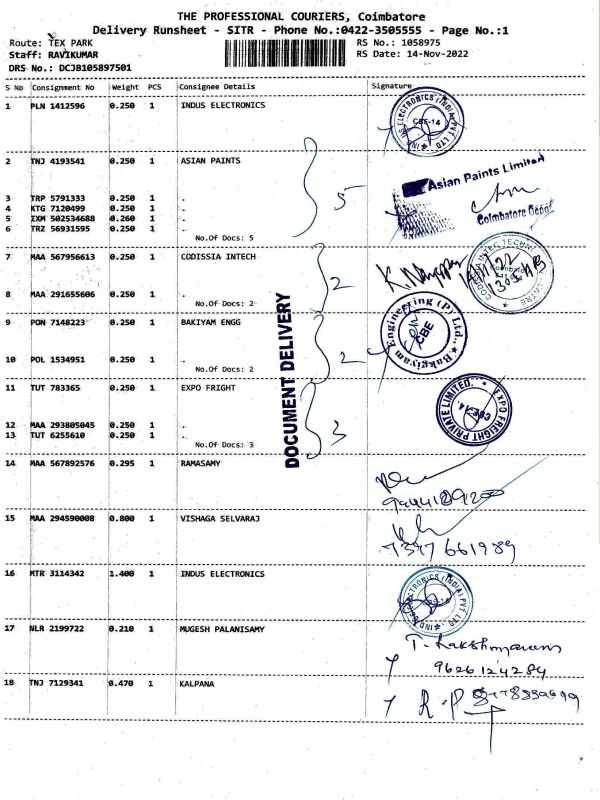 THE PROFESSIONAL COURIERS, Coimbatore
Delivery Runsheet - SITR - Phone No.:0422-3505555 - Page No.:1
Route: TEX PARK
RS No.: 1058975
Staff: RAVIKUMAR
RS Date: 14-Nov-2022
DRS No.: DCJB105897501
S No Consignment No Weight PCS Consignee Details Signature
1 PLN 1412596 0.250 1 INDUS ELECTRONICS
CBE-14
2 TNJ 4193541 0.250 1 ASIAN PAINTS
Asian Paints Limited
Coimbatore Depot
3 TRP 5791333 0.250 1 .
4 KTG 7120499 0.250 1 .
5 IXM 502534688 0.260 1 .
6 TRZ 56931595 0.250 1 .
No.Of Docs: 5
5
7 MAA 567956613 0.250 1 CODISSIA INTECH
8 MAA 291655606 0.250 1 .
No.Of Docs: 2
2
9 PON 7148223 0.250 1 BAKIYAM ENGG
Bakgiyam Engineering (P) Ltd.,
CBE
10 POL 1534951 0.250 1 .
No.Of Docs: 2
2
DOCUMENT DELIVERY
11 TUT 783365 0.250 1 EXPO FREIGHT
EXPO FREIGHT PRIVATE LIMITED.
CBE-14.
12 MAA 293805045 0.250 1 .
13 TUT 6255610 0.250 1 .
No.Of Docs: 3
3
14 MAA 567892576 0.295 1 RAMASAMY
15 MAA 294590008 0.800 1 VISHAGA SELVARAJ
7397661989
16 MTR 3114342 1.400 1 INDUS ELECTRONICS
17 NLR 2199722 0.210 1 MUGESH PALANISAMY
9626124284
18 TNJ 7129341 0.470 1 KALPANA
R.P